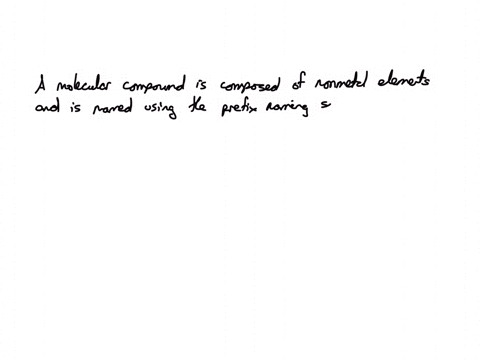 A molecular compound is composed of nonmetal elements
and is named using the prefix naming s